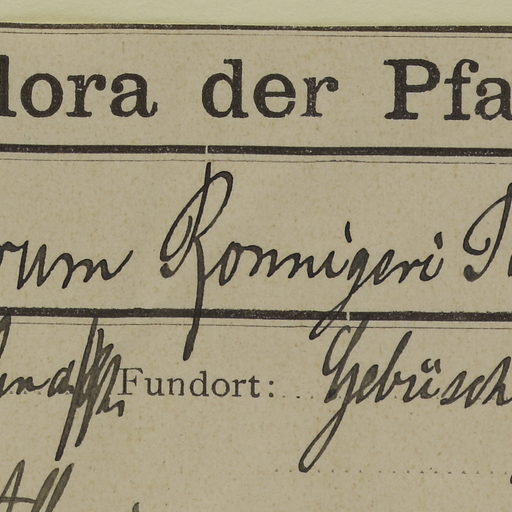 lora der Pfa
rum Ronnigeri
Fundort: Gebüsch